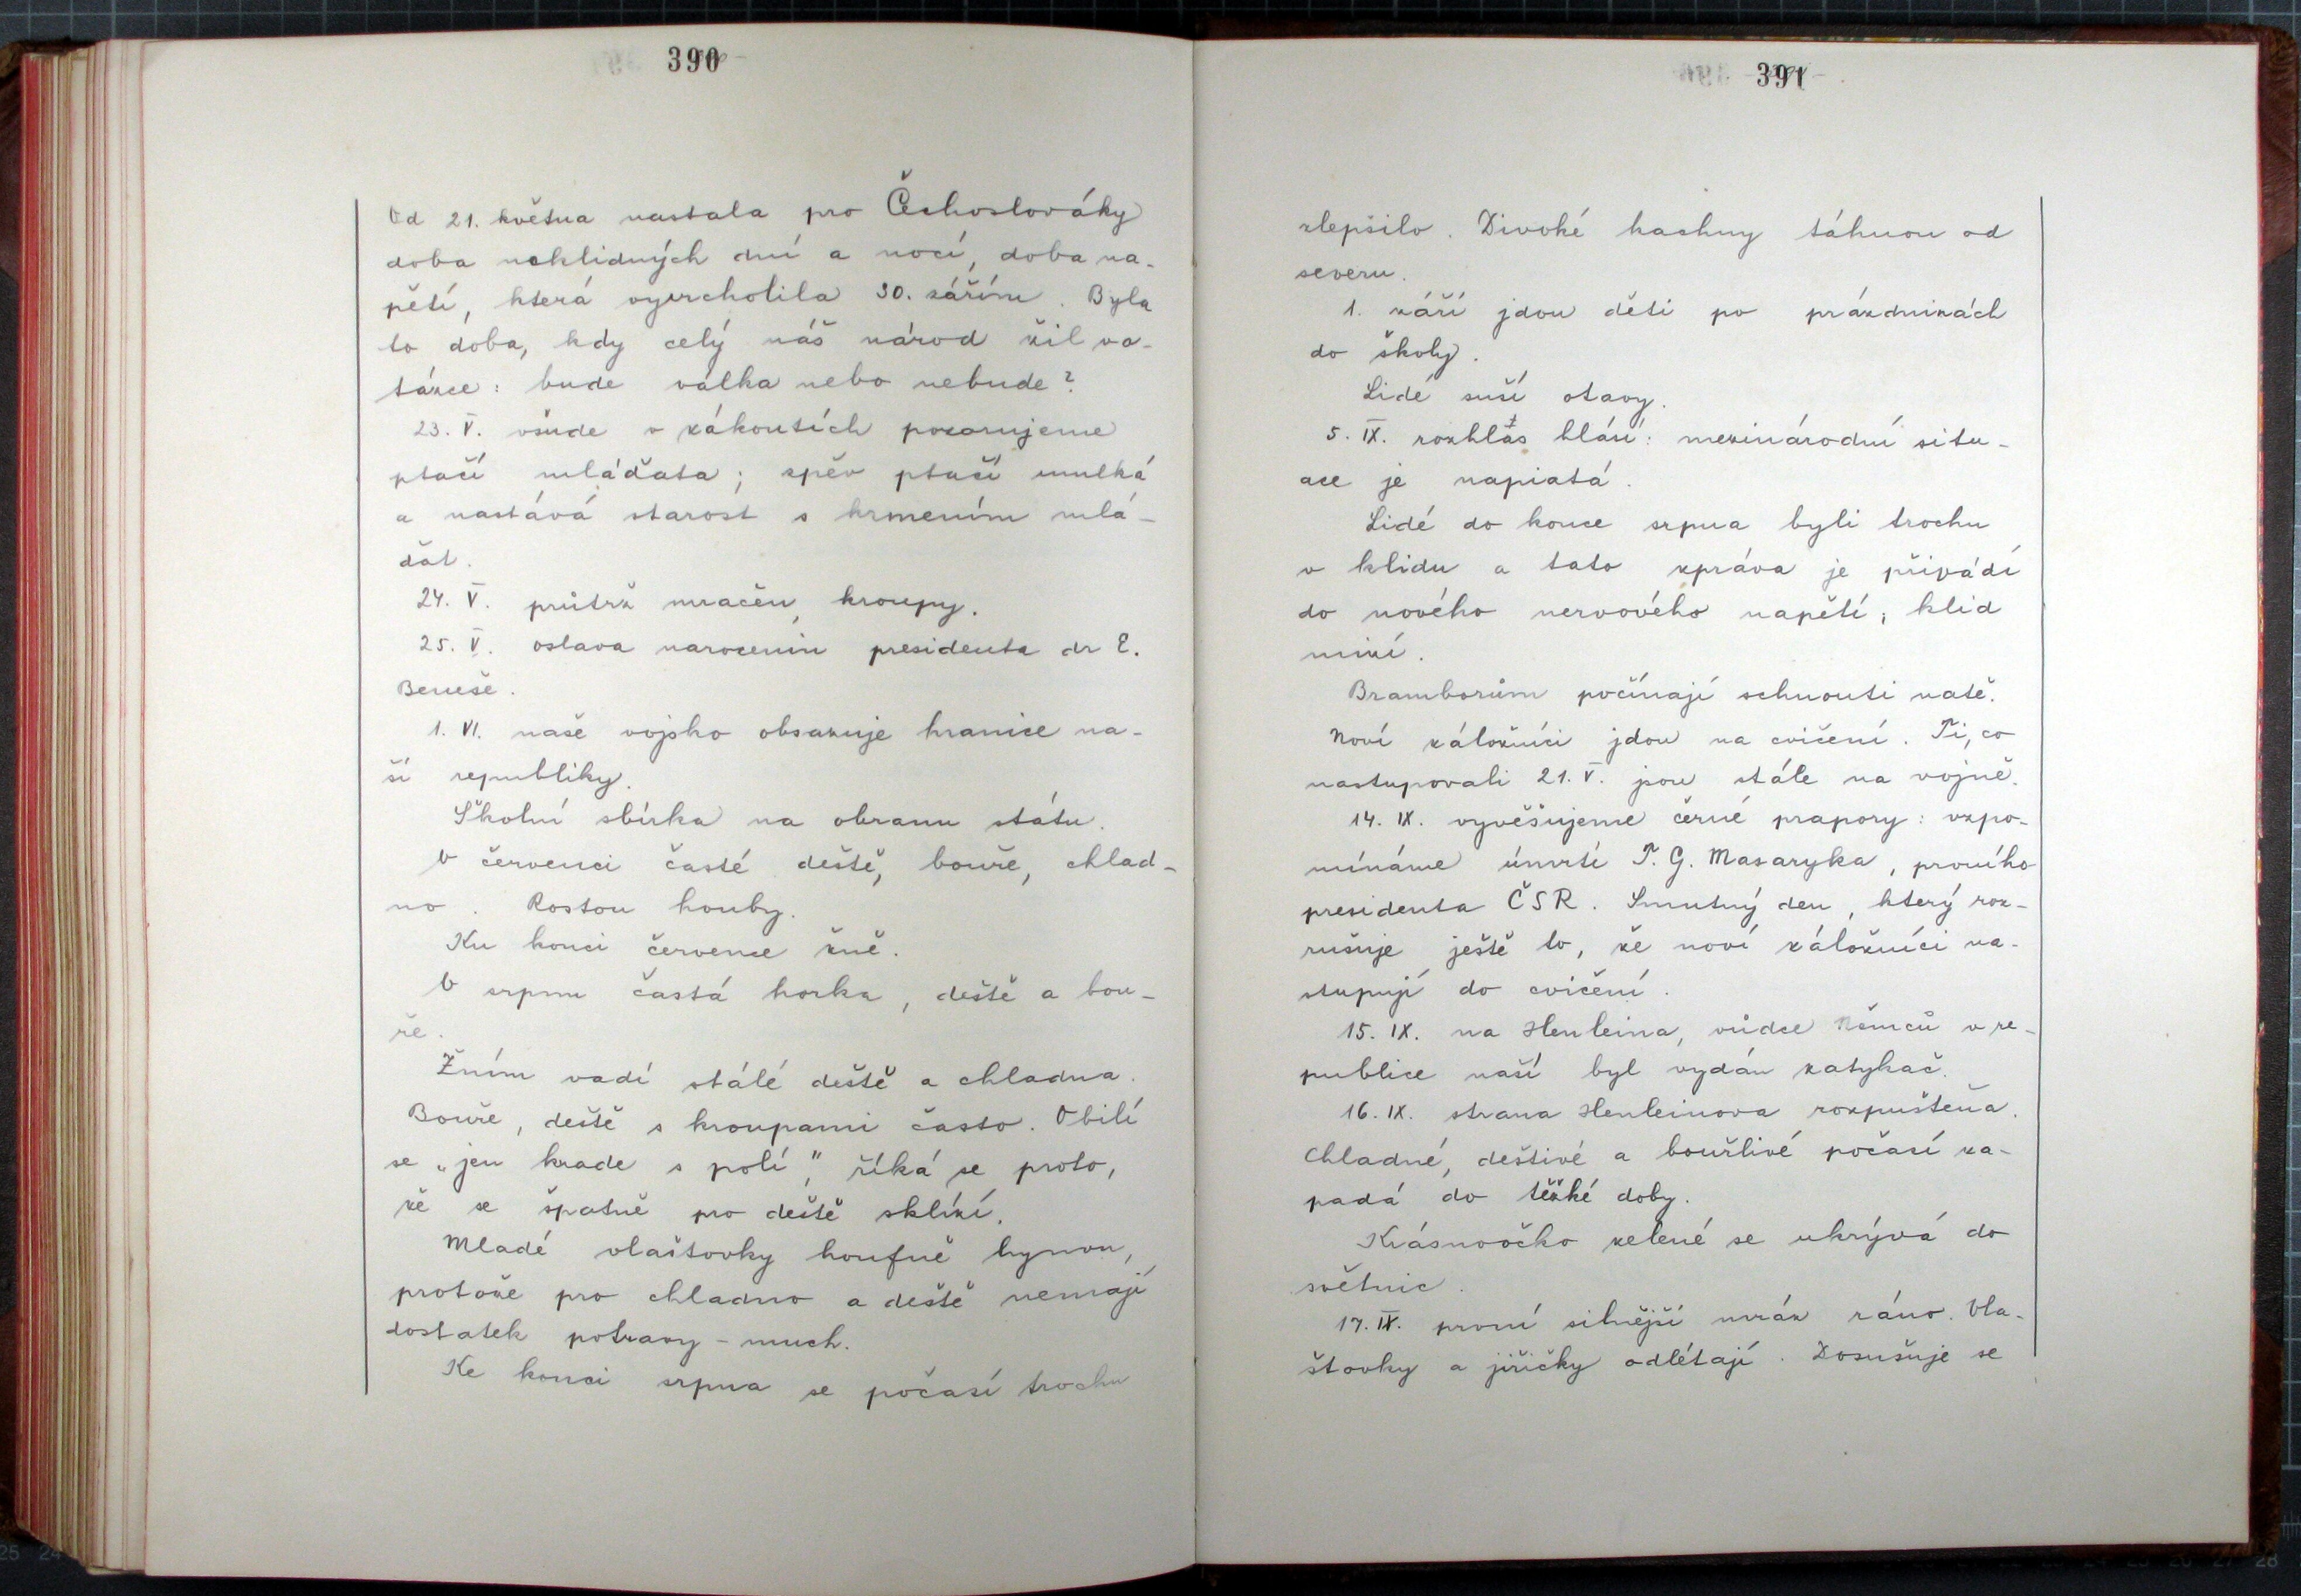 390
Od 21. května nastala pro Čechoslováky
doba neklidných dní a nocí, doba na-
pětí, která vyvrcholila 30. zářím. Byla
to doba, kdy celý náš národ žil v o-
tázce: bude válka nebo nebude?
23. V. všude v zákoutích pozorujeme
ptačí mláďata; zpěv ptačí umlká
a nastává starost s krmením mlá-
ďat.
24. V. průtrž mračen, kroupy.
25. V. oslava narozenin presidenta dr E.
Beneše.
1. VI. naše vojsko obsazuje hranice na-
ší republiky.
Školní sbírka na obranu státu.
V červenci časté deště, bouře, chlad-
no. Rostou houby.
Ku konci července žně.
V srpnu častá horka, deště a bou-
ře.
Žním vadí stálé deště a chladna.
Bouře, deště s kroupami často. Obilí
se „jen krade s polí", říká se proto,
že se špatně pro deště sklízí.
Mladé vlaštovky houfně hynou,
protože pro chladno a deště nemají
dostatek potravy - much.
Ke konci srpna se počasí trochu
391
zlepšilo. Divoké kachny táhnou od
severu.
1. září jdou děti po prázdninách
do školy.
Lidé suší otavy.
5. IX. rozhlas hlásí: mezinárodní situ-
ace je napiatá.
Lidé do konce srpna byli trochu
v klidu a tato zpráva je přivádí
do nového nervového napětí; klid
mizí.
Bramborům počínají schnouti natě.
Noví záložníci jdou na cvičení. Ti, co
nastupovali 21. V. jsou stále na vojně.
14. IX. vyvěšujeme černé prapory: vzpo-
mínáme úmrtí T. G. Masaryka, prvního
presidenta ČSR. Smutný den, který roz-
rušuje ještě to, že noví záložníci na-
stupují do cvičení.
15. IX. na Henleina, vůdce Němců v re-
publice naší byl vydán zatykač.
16. IX. strana Henleinova rozpuštěna.
Chladné, deštivé a bouřlivé počasí za-
padá do těžké doby.
Krásnoočko zelené se ukrývá do
světnic.
17. IX. první silnější mráz ráno. Vla-
štovky a jiřičky odlétají. Dosušuje se